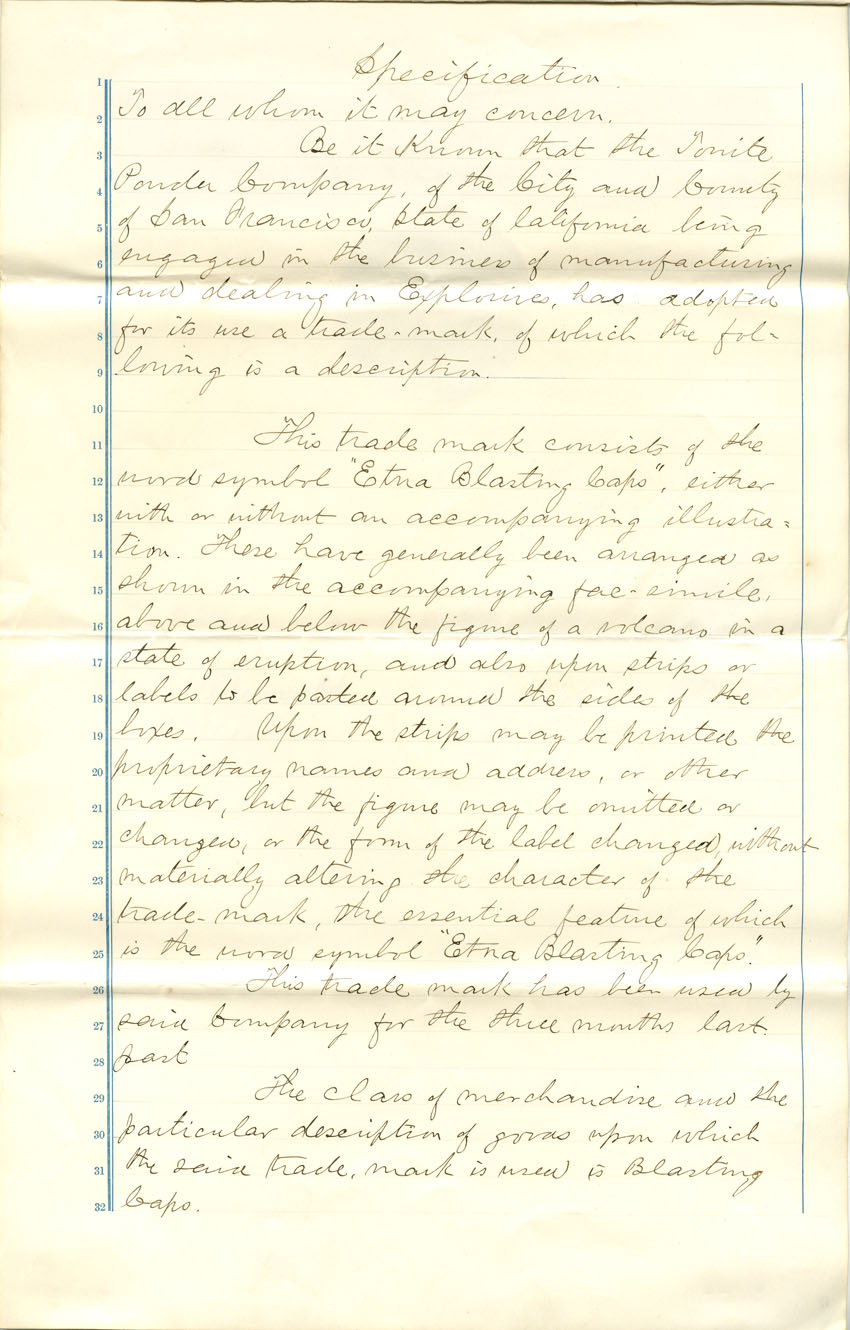 1 Specification.
2 To all whom it may concern.
3 Be it Known that the Tonite
4 Powder Company, of the City and County
5 of San Francisco, State of California being
6 engaged in the business of manufacturing
7 and dealing in Explosives, has adopted
8 for its use a trade-mark, of which the fol-
9 lowing is a description.
10
11 This trade mark consists of the
12 word symbol "Etna Blasting Caps", either
13 with or without an accompanying illustra=
14 tion. These have generally been arranged as
15 shown in the accompanying fac-simile,
16 above and below the figure of a volcano in a
17 state of eruption, and also upon strips or
18 labels to be pasted around the sides of the
19 boxes. Upon the strips may be printed the
20 proprietary names and address, or other
21 matter, but the figure may be omitted or
22 changed, or the form of the label changed, without
23 materially altering the character of the
24 trade-mark, the essential feature of which
25 is the word symbol "Etna Blasting Caps."
26 This trade mark has been used by
27 said Company for the three months last
28 past
29 The class of merchandise and the
30 particular description of goods upon which
31 the said trade, mark is used is Blasting
32 Caps.